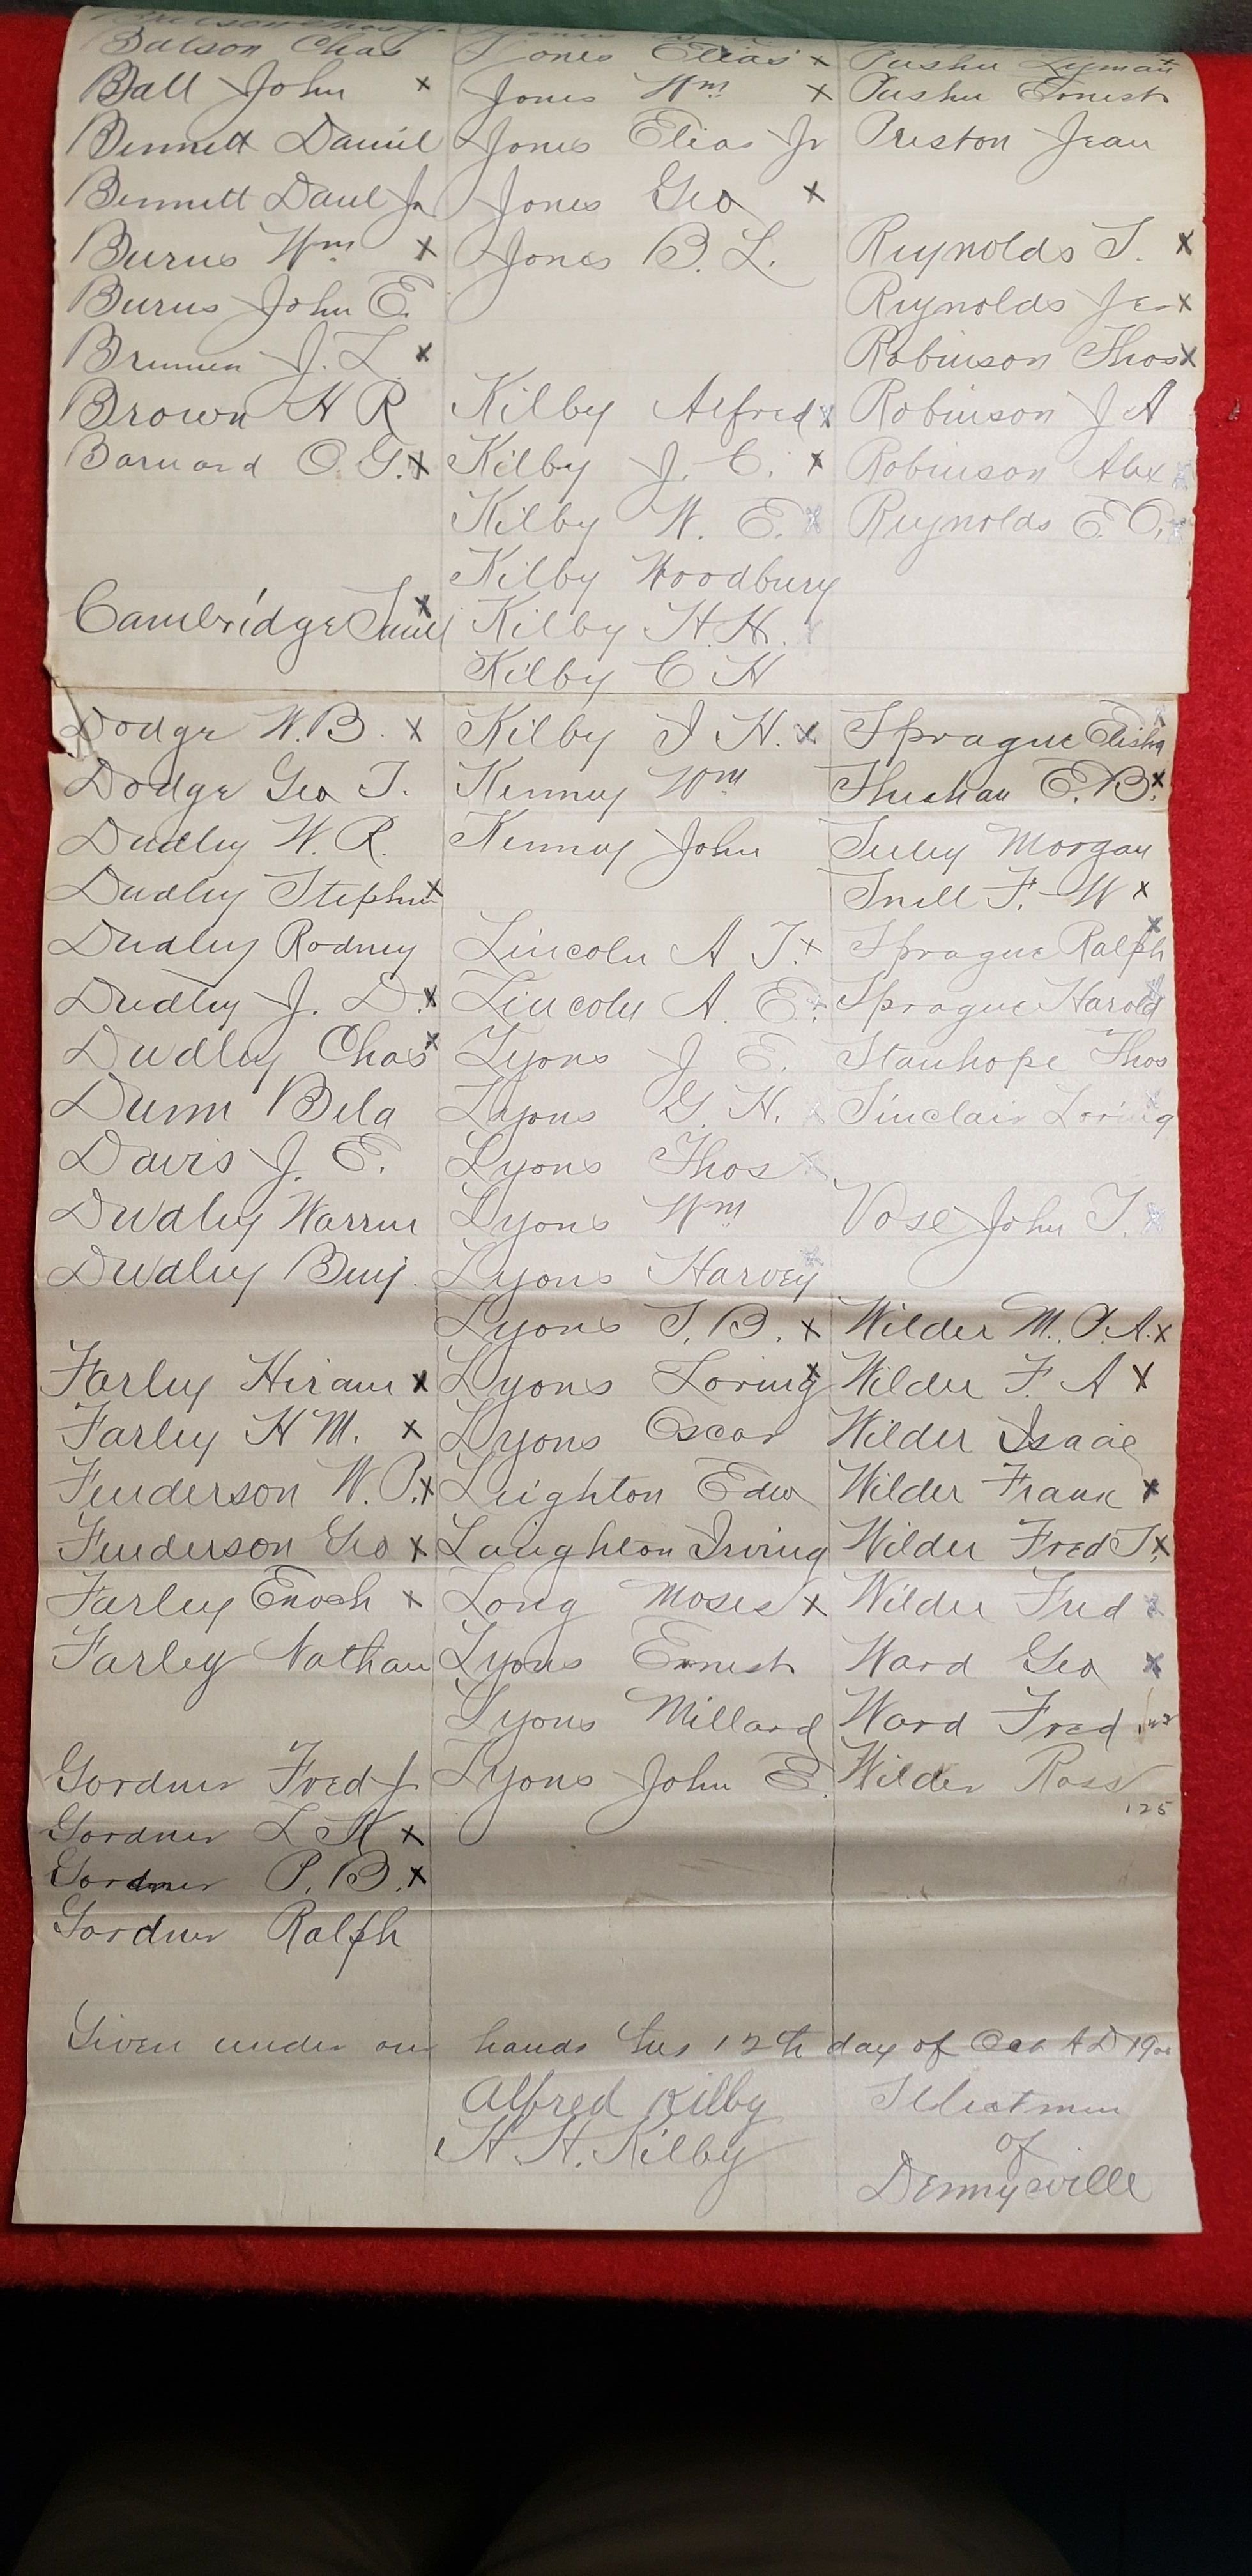 Batson Chas
Ball John x
Bennett Daniel
Bennett Danl Jr
Burns Wm x
Burns John E.
J. L. x
Brown H R
Barnard O. G. x
Cambridge Saml x
Dodge W. B. x
Dodge Geo T.
Dudley W. R.
Dudley Stephen x
Dudley Rodney
Dudley J. D. x
Dudley Chas x
Dunn Bela
Davis J. E.
Dudley Warren
Dudley Benj.
Farley Hiram x
Farley H M. x
Fenderson W. P. x
Fenderson Geo x
Farley Enoch x
Farley Nathan
Gardner Fred J
Gardner L K x
Gardner P. B. x
Gardner Ralph
Jones Elias x
Jones Wm x
Jones Elias Jr
Jones Geo x
Jones B. L.
Kilby Alfred x
Kilby J. C. x
Kilby W. E. x
Kilby Woodbury
Kilby H. H. x
Kilby C H
Kilby I H. x
Kenney Wm
Kenney John
Lincoln A T. x
Lincoln A. E. x
Lyons J E.
Lyons G. H. x
Lyons Thos x
Lyons Wm
Lyons Harvey x
Lyons S. B. x
Lyons Loring x
Lyons Oscar
Leighton Edw
Laighton Irving
Long Moses x
Lyons Ernest
Lyons Millard
Lyons John E.
Pushee Lyman x
Pushee Ernest
Preston Jean
Reynolds S. x
Reynolds x
Robinson Thos x
Robinson J A
Robinson Alex x
Reynolds E. O. x
Sprague Elisha x
Sheehan E. B. x
Seeley Morgan
Snell F. W x
Sprague Ralph x
Sprague Harold x
Stanhope Thos
Sinclair Loring x
Vose John T. x
Wilder M. P. A. x
Wilder F. A x
Wilder Isaac
Wilder Frank x
Wilder Fred T x
Wilder Fred x
Ward Geo x
Ward Fred
Wilder Ross
125
Given under our hands this 12th day of Oct A D
Alfred Kilby
H. H. Kilby
Selectmen
of
Dennysville